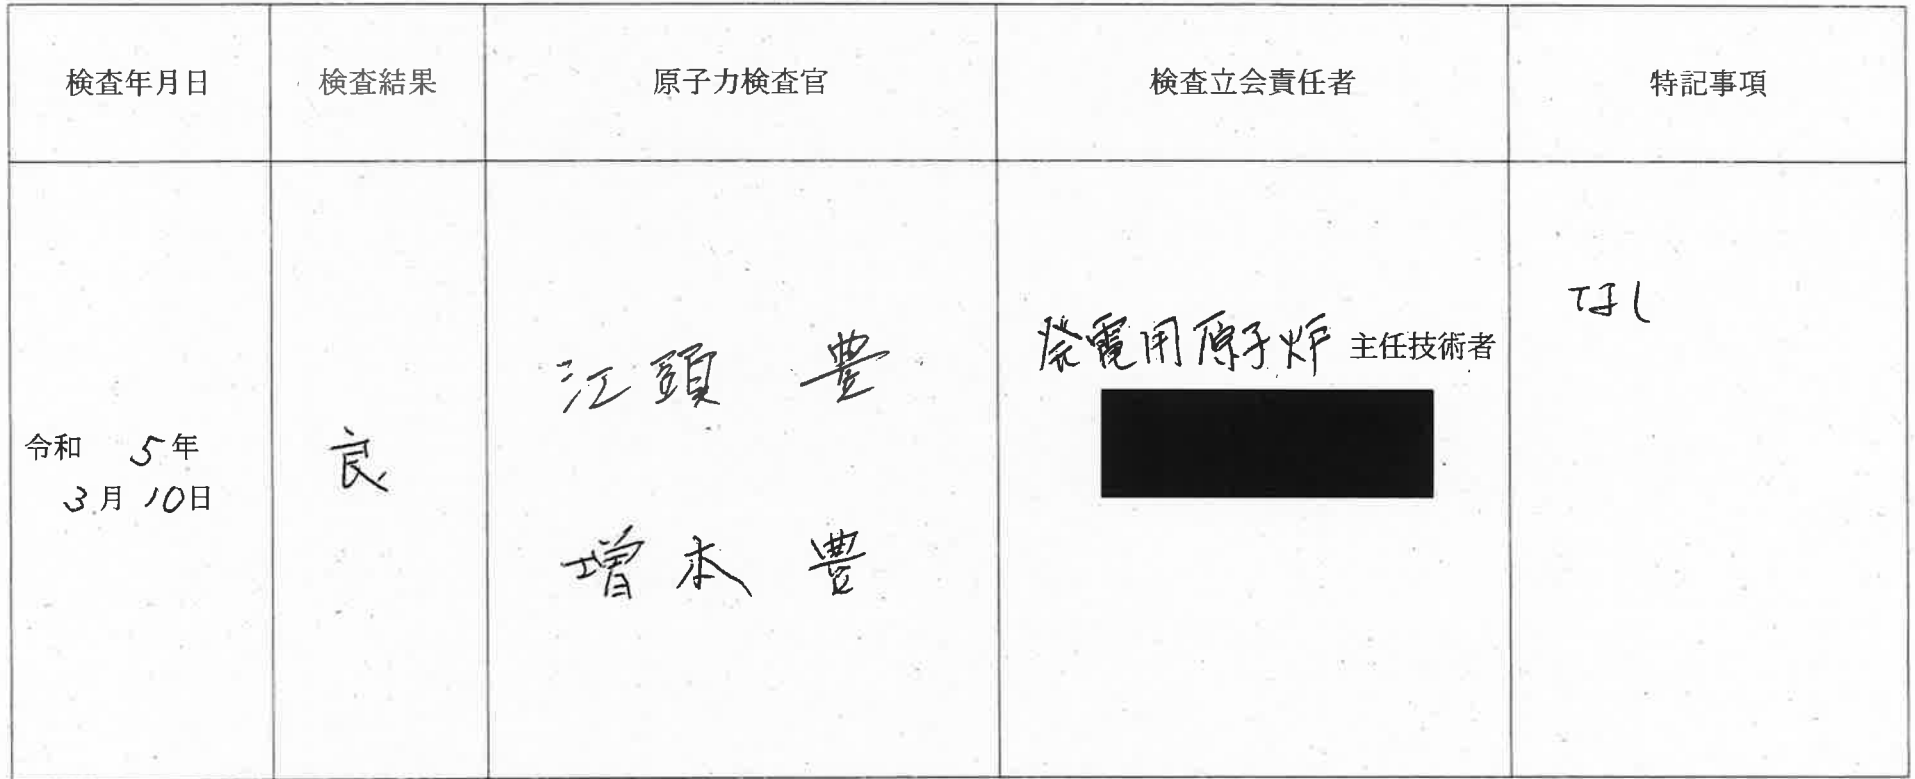 検査年月日 検査結果 原子力検査官 検査立会責任者 特記事項
令和 5年
3月 10日
良
江頭 豊
増本 豊
発電用原子炉 主任技術者
なし